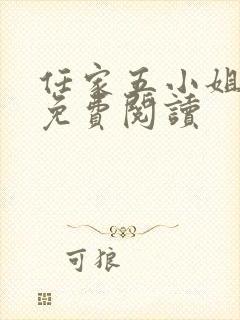 任家五小姐
免費閱讀
可狼